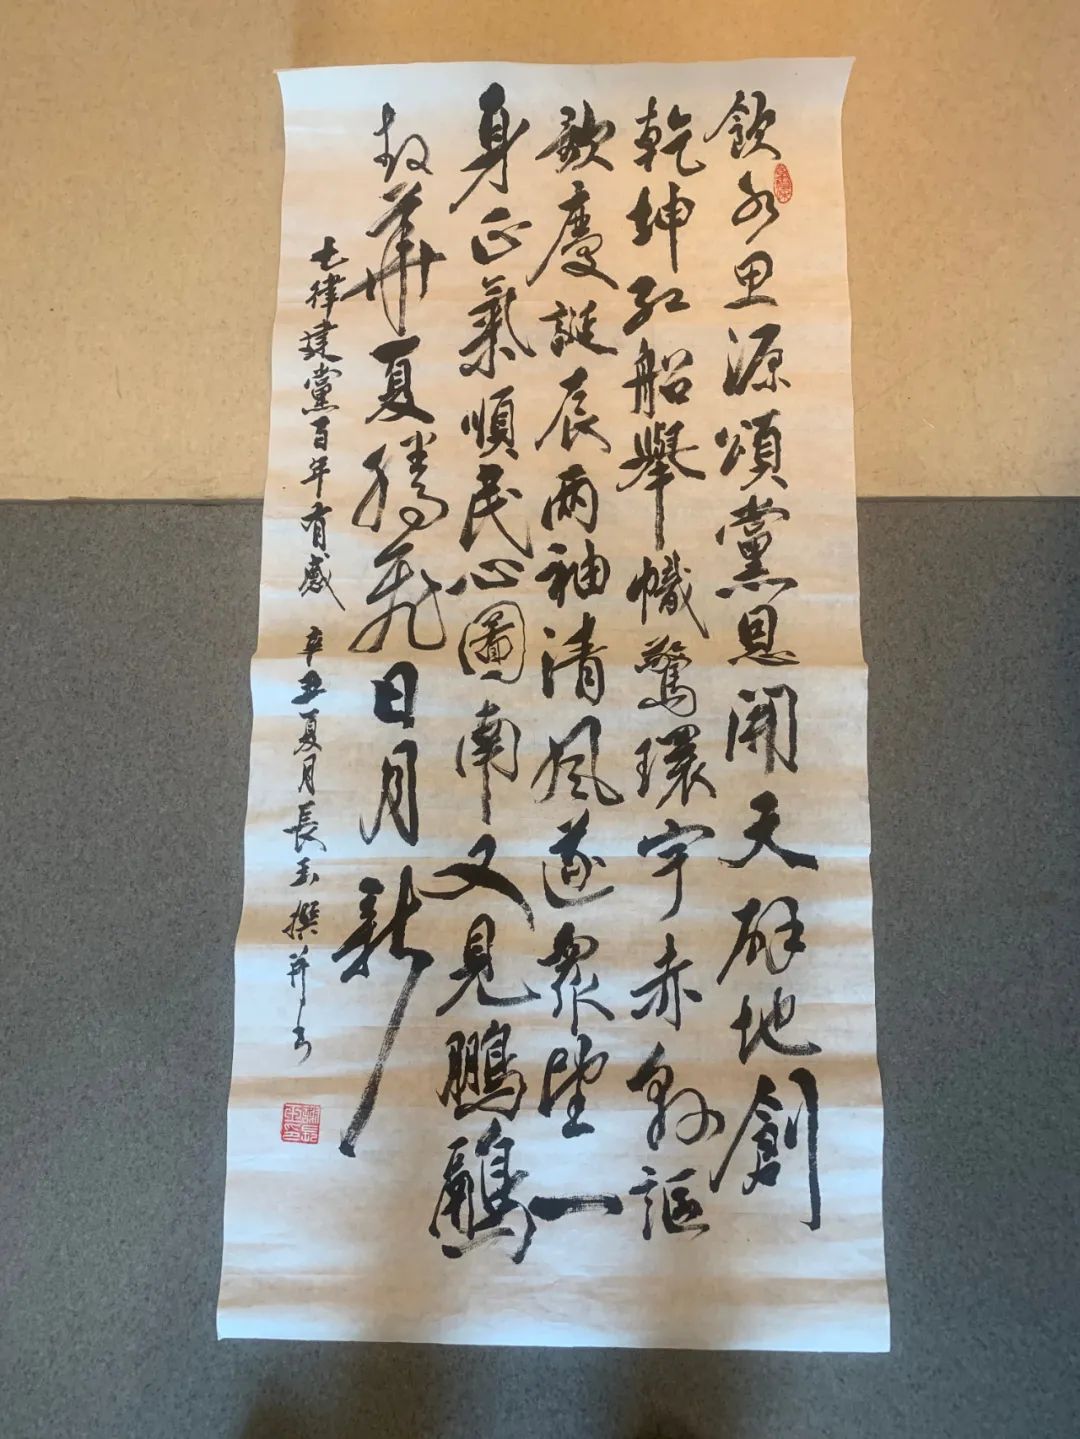 飲水思源頌黨恩開天辟地創
乾坤紅船舉幟驚環宇赤縣謳
歌慶誕辰兩袖清風遂眾望一
身正氣順民心圖南又見鵬
華夏騰飛日月新
七律建黨百年有感 辛丑夏月長玉撰并书